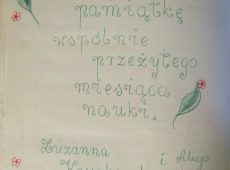 pamiątkę
wspólnie
przeżytego
miesiąca
nauki.
Zuzanna i Alicja